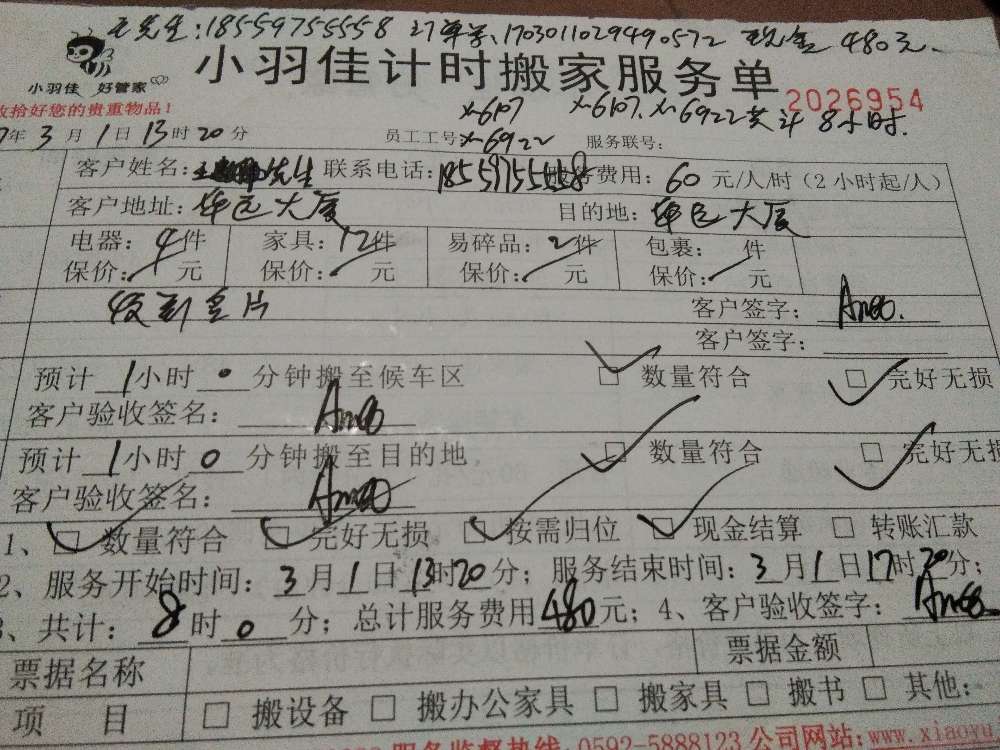 王先生:18559755558 订单号:170301102949490572 现金480元.
小羽佳 好管家
小羽佳计时搬家服务单
收拾好您的贵重物品!
2026954
x-6107 x-6107. x-6922共计8小时.
年3月1日13时20分 员工工号x-6922 服务联号:
客户姓名: 先生 联系电话:18559755558 费用: 60 元/人/时(2小时起/人)
客户地址: 华邑大厦 目的地: 华邑大厦
电器: 4件 家具: 12件 易碎品: 2件 包裹: 件
保价: 元 保价: 元 保价: 元 保价: 元
收到名片 客户签字:
客户签字:
预计1小时0分钟搬至候车区 ☐ 数量符合 ☐ 完好无损
客户验收签名:
预计1小时0分钟搬至目的地, ☐ 数量符合 ☐ 完好无损
客户验收签名:
1、☐ 数量符合 ☐ 完好无损 ☐ 按需归位 ☐ 现金结算 ☐ 转账汇款
2、服务开始时间: 3月1日13时20分; 服务结束时间: 3月1日17时20分;
3、共计: 8时0分; 总计服务费用480元; 4、客户验收签字:
票据名称 票据金额
项 目 ☐ 搬设备 ☐ 搬办公家具 ☐ 搬家具 ☐ 搬书 ☐ 其他:
服务监督热线: 0592-5888123 公司网站: www.xiaoyu